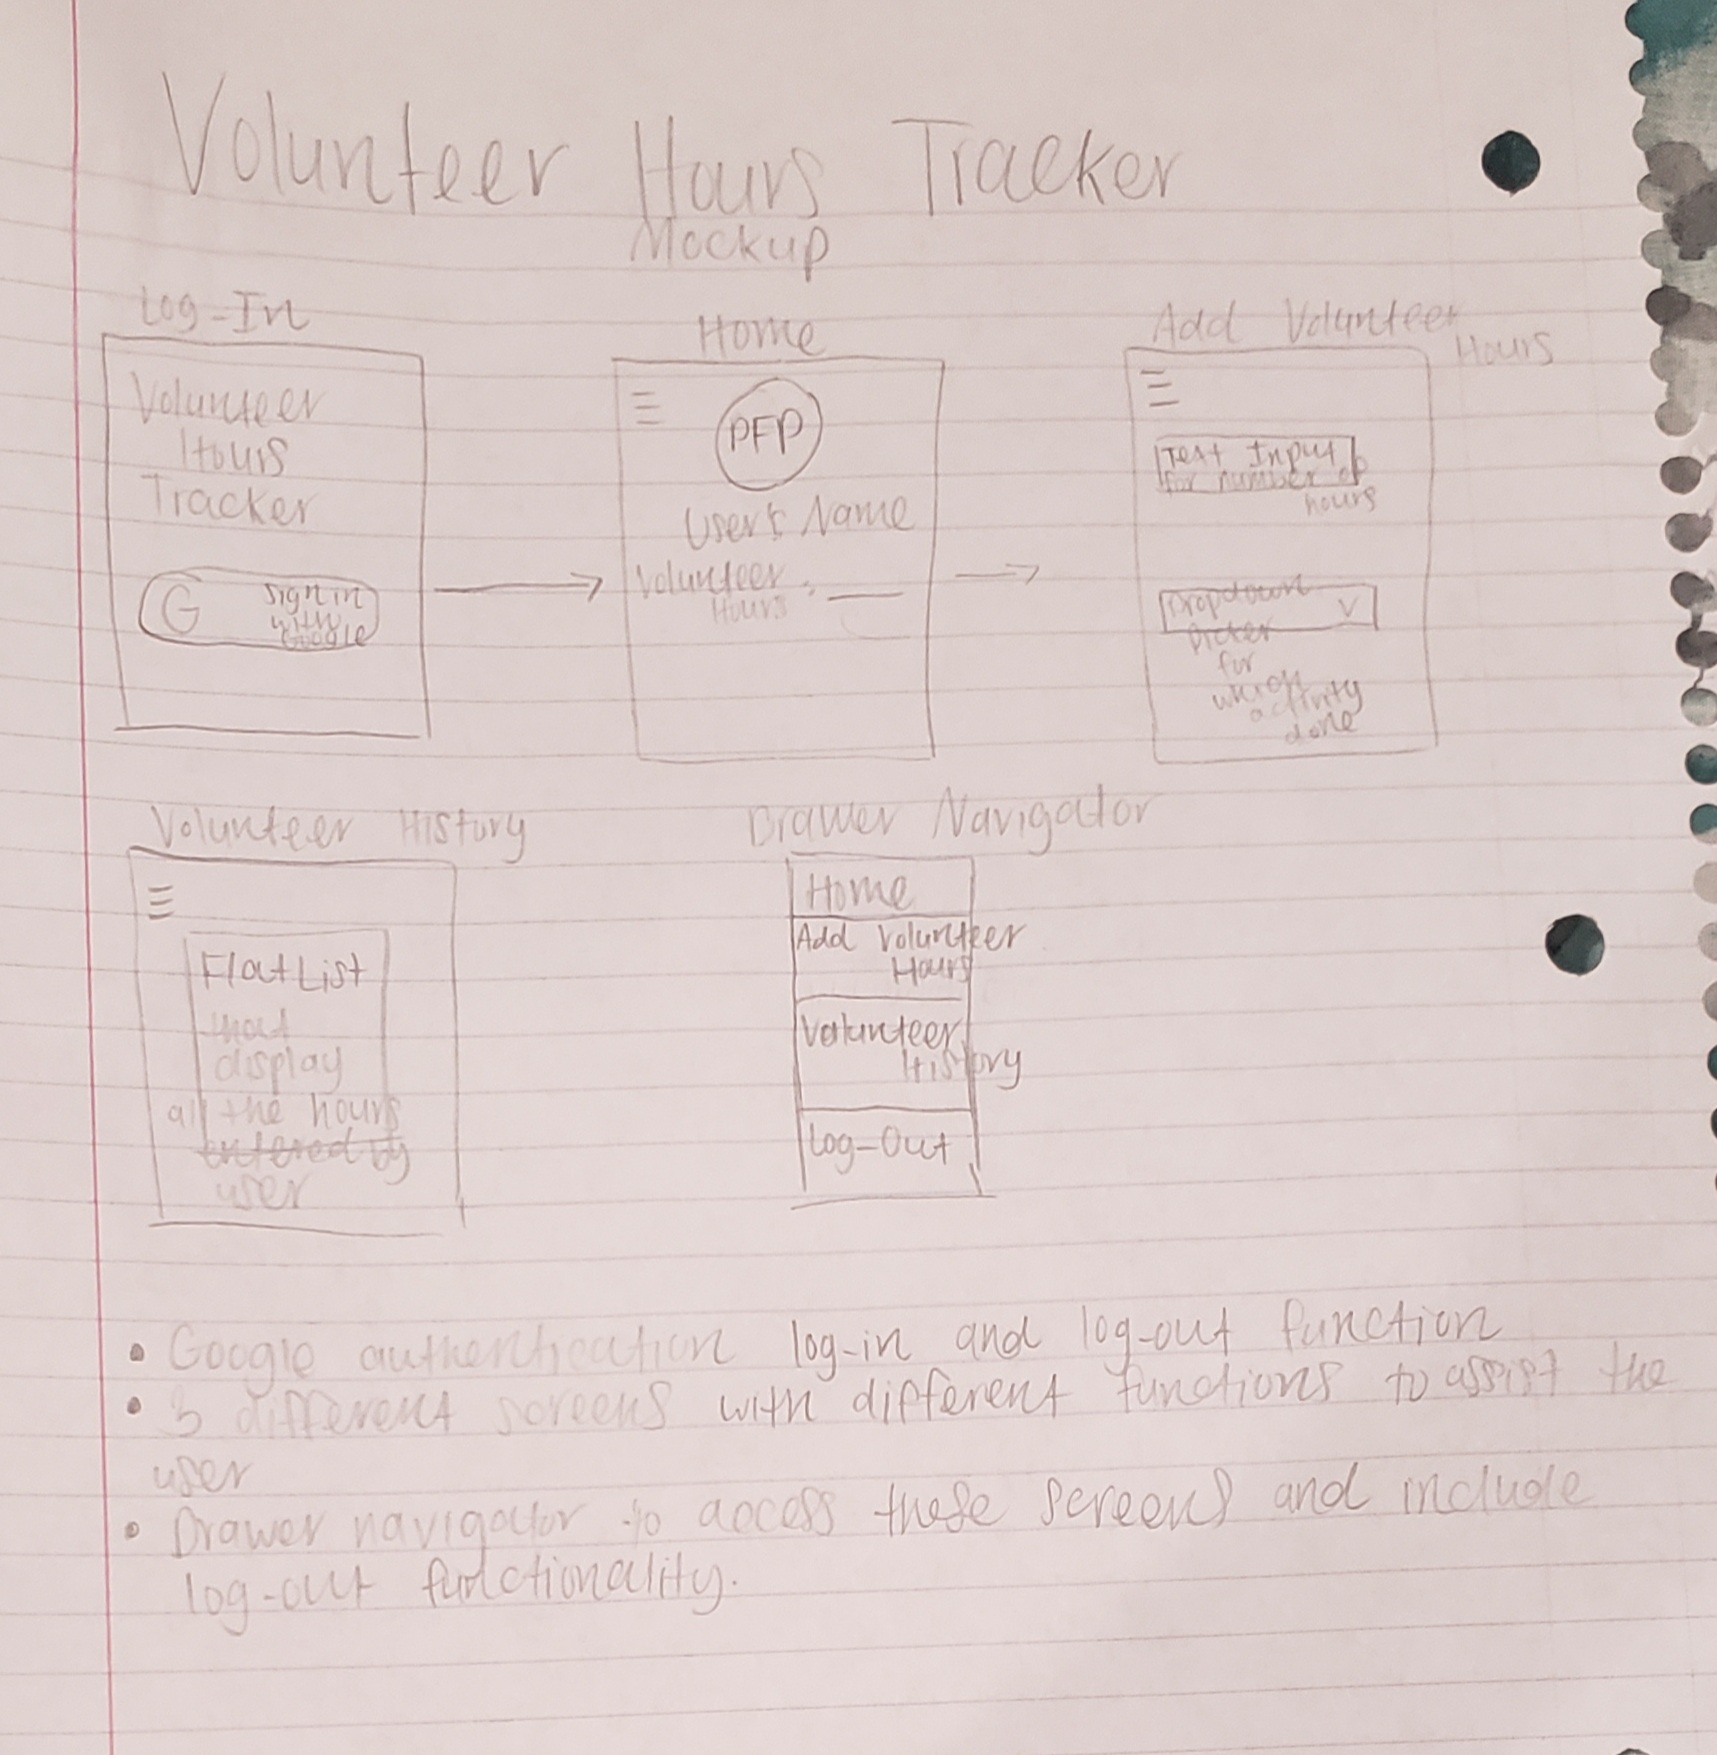 Volunteer Hours Tracker
Mockup
Log-In
Volunteer
Hours
Tracker
G
Sign in
with
Google
Home
PFP
User's Name
Volunteer
Hours : ___
Add Volunteer
Hours
Text Input
for number of
hours
Dropdown V
Picker
for
which
activity
done
Volunteer History
FlatList
that
display
all the hours
entered by
user
Drawer Navigator
Home
Add Volunteer
Hours
Volunteer
History
Log-Out
• Google authentication log-in and log-out function
• 3 different screens with different functions to assist the
user
• Drawer navigator to access these screens and include
log-out functionality.